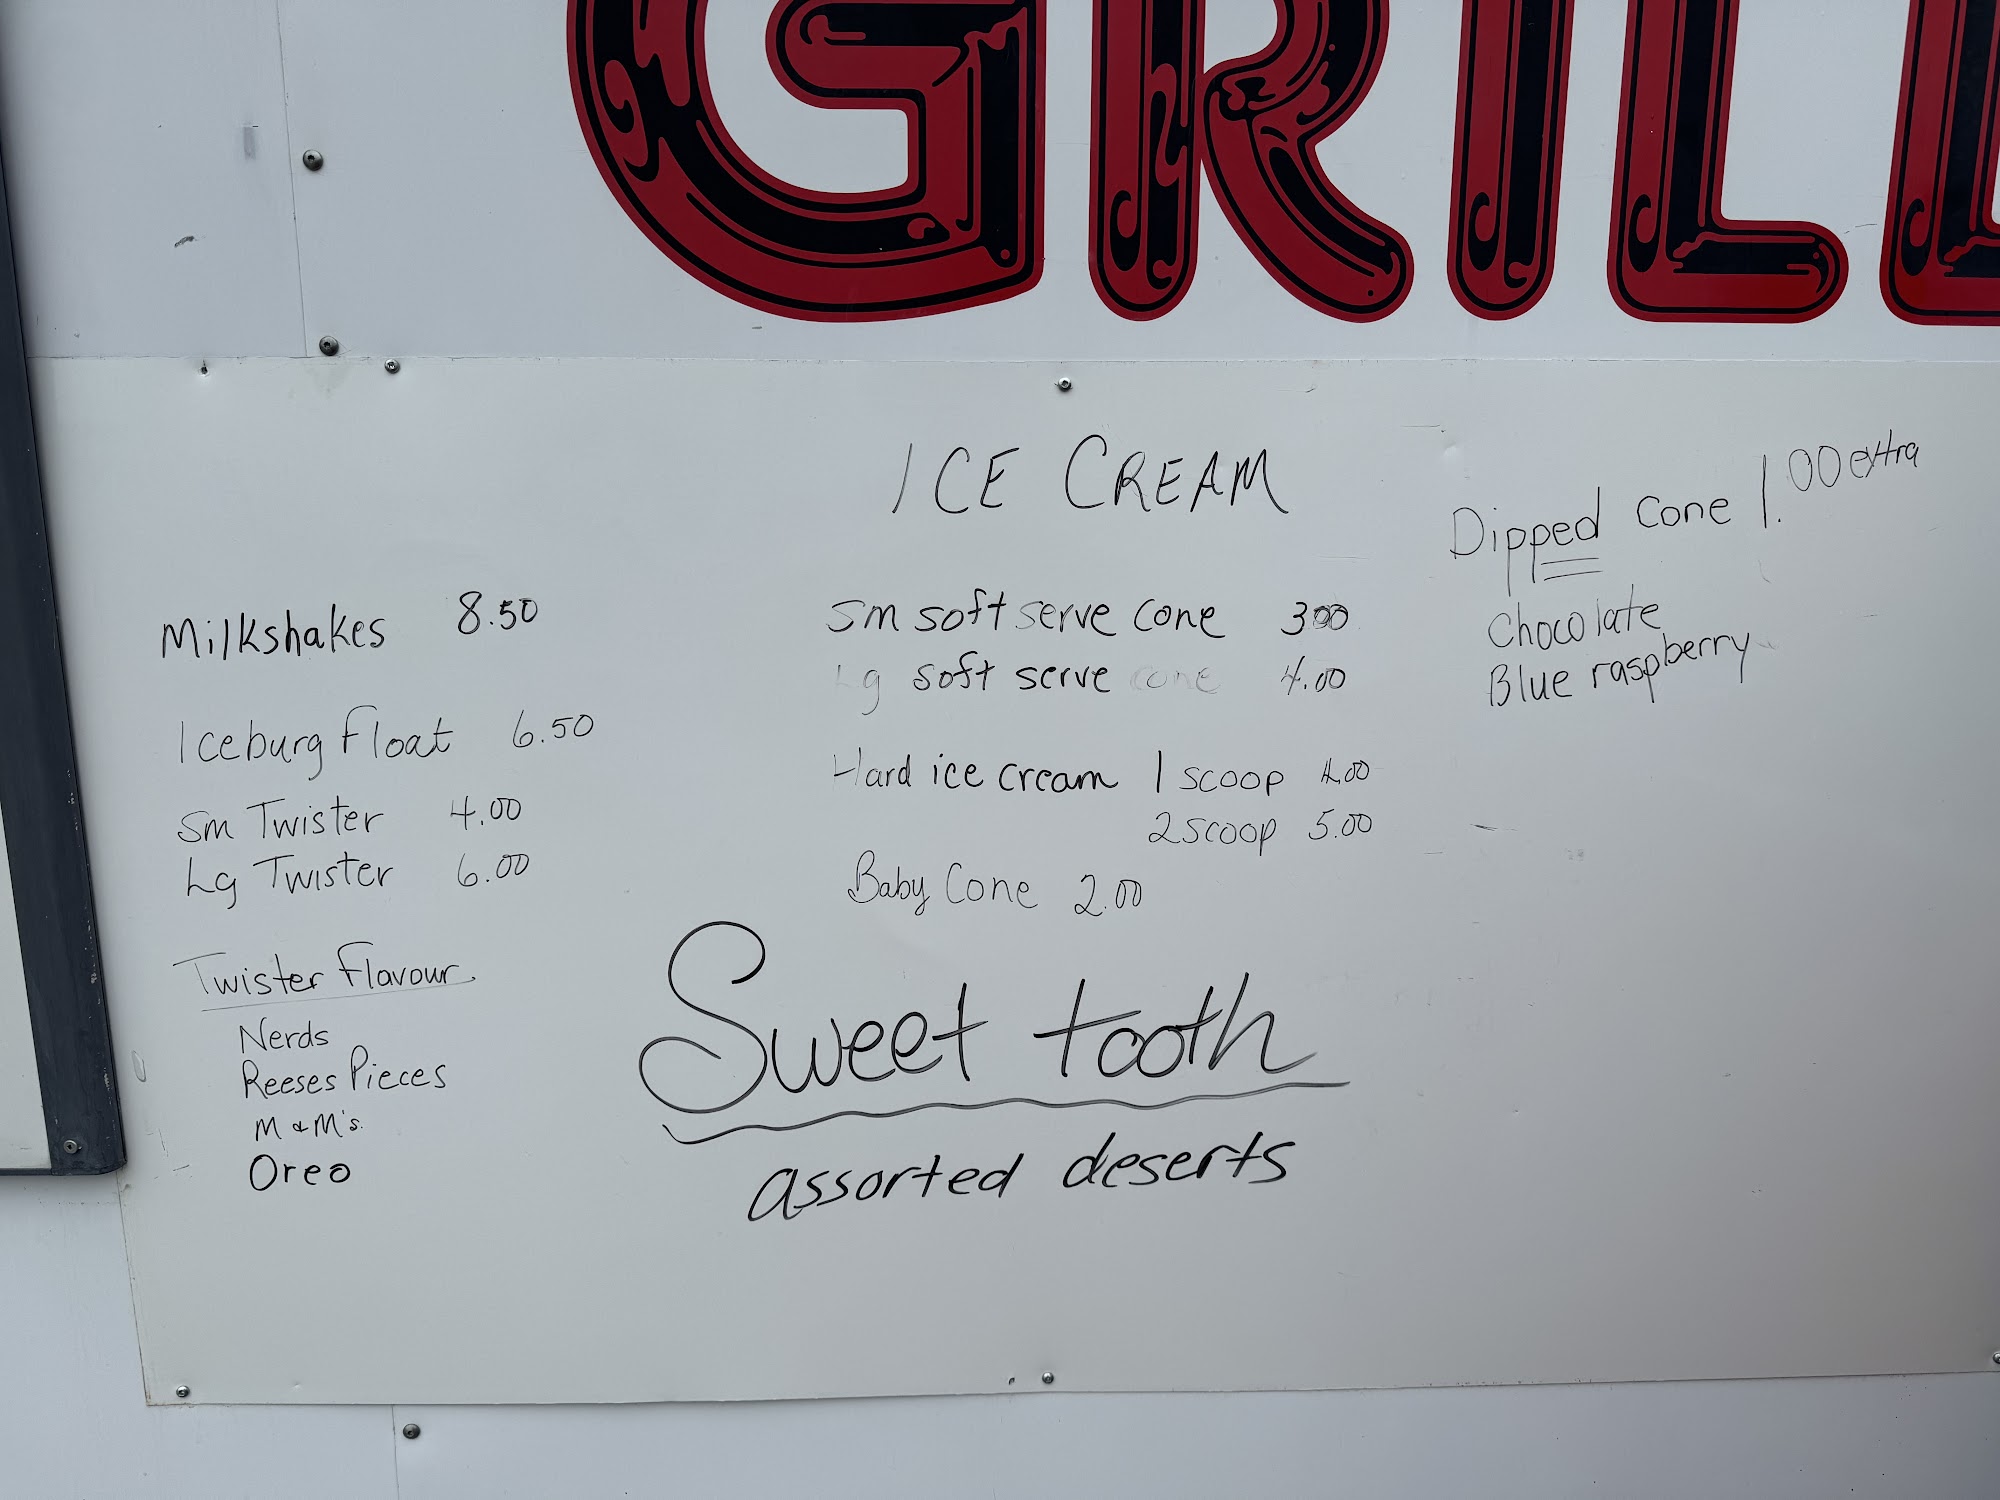 GRILL
ICE CREAM
Milkshakes 8.50
Iceburg Float 6.50
Sm Twister 4.00
Lg Twister 6.00
Twister Flavour
Nerds
Reeses Pieces
M & M's.
Oreo
Sm soft serve cone 3.00
Lg soft serve cone 4.00
Hard ice cream 1 scoop 4.00
2 scoop 5.00
Baby Cone 2.00
Dipped Cone 1.00 extra
Chocolate
Blue raspberry
Sweet tooth
assorted deserts